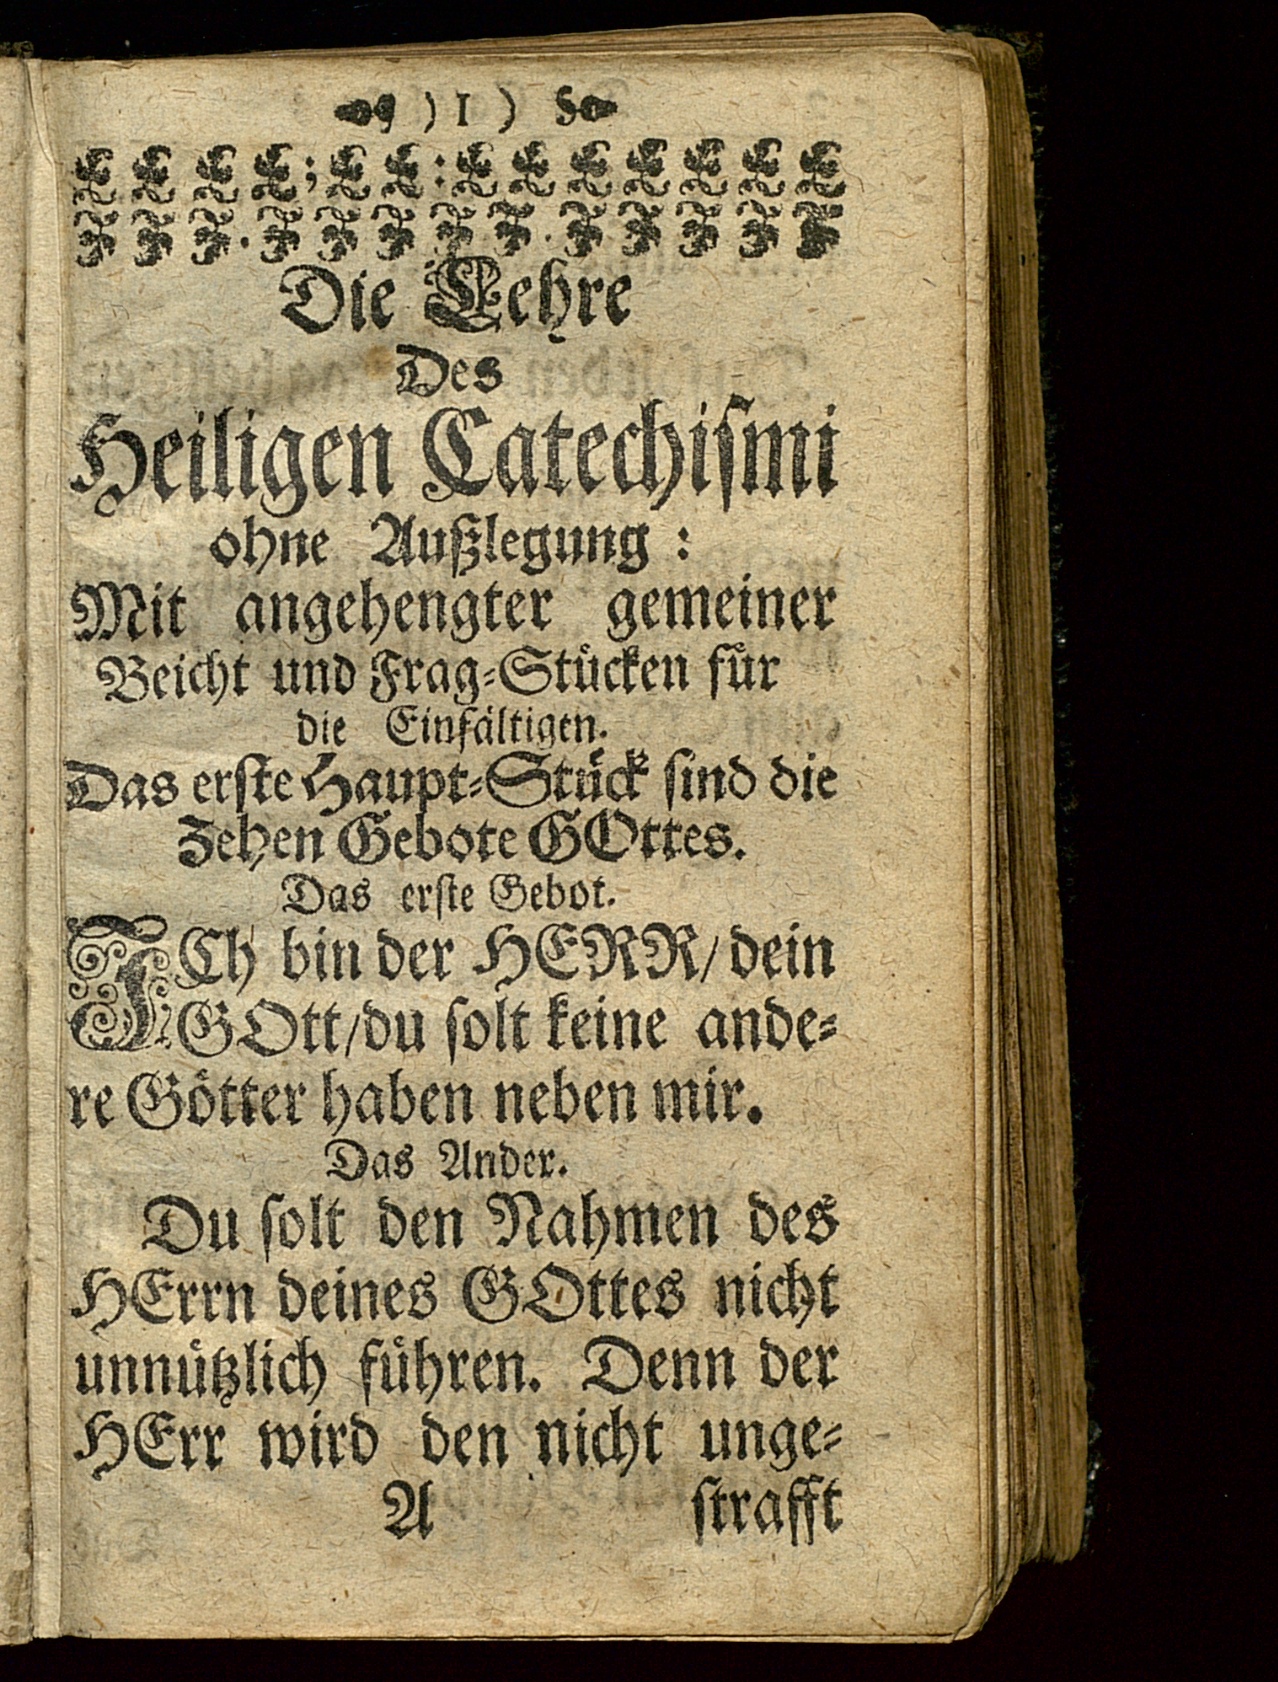 ) 1 )
Die Lehre
Des
Heiligen Catechiſmi
ohne Außlegung :
Mit angehengter gemeiner
Beicht und Frag-Stuͤcken fuͤr
die Einfaͤltigen.
Das erſte Haupt-Stuͤck ſind die
Zehen Gebote GOttes.
Das erſte Gebot.
ICh bin der HERR/ dein
GOtt/du ſolt keine ande-
re Goͤtter haben neben mir.
Das Ander.
Du ſolt den Nahmen des
HErrn deines GOttes nicht
unnuͤtzlich fuͤhren. Denn der
HErr wird den nicht unge-
A ſtrafft